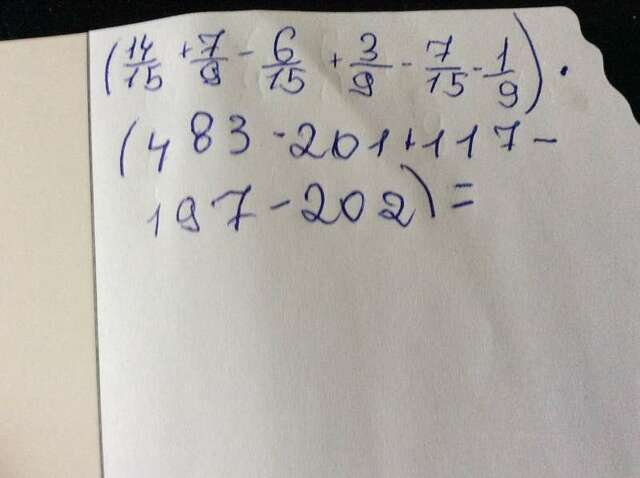 (14/15 + 7/9 - 6/15 + 3/9 - 7/15 - 1/9) ·
(483 - 201 + 117 -
197 - 202) =